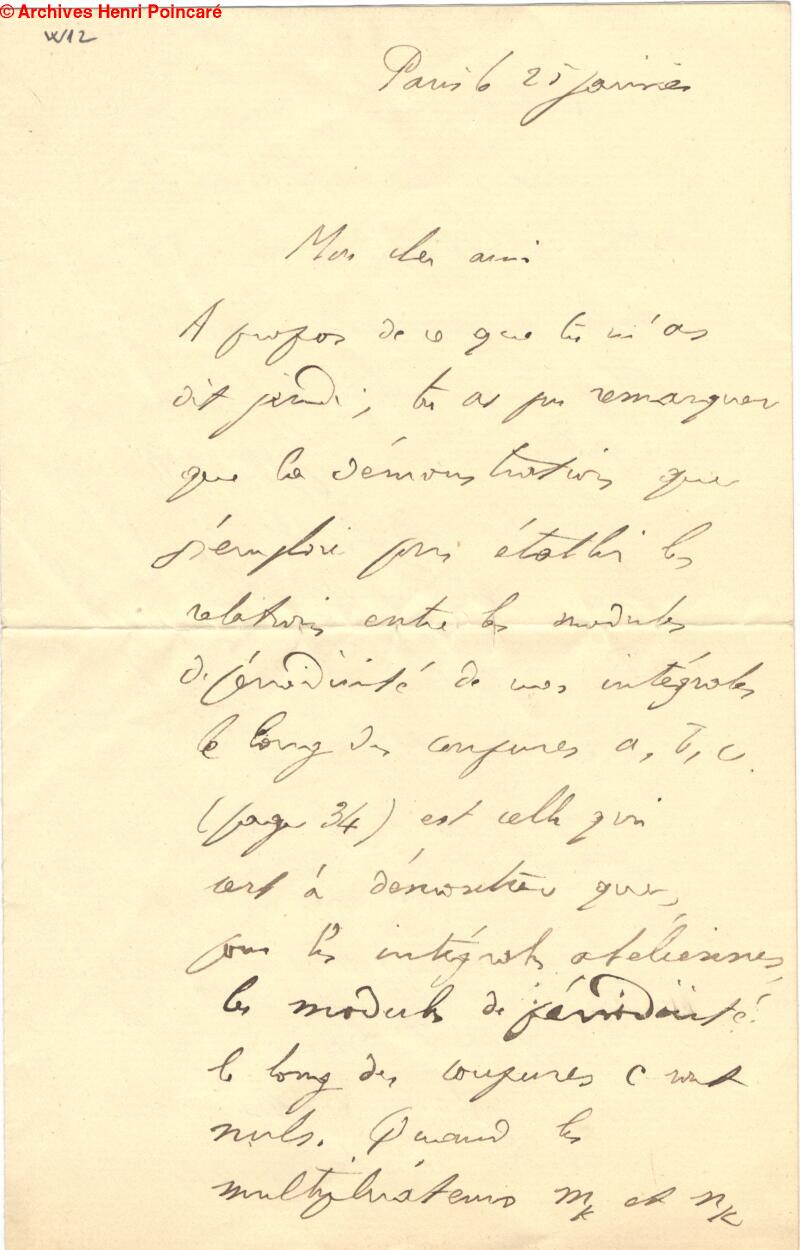 © Archives Henri Poincaré
W12
Paris le 25 janvier
Mon cher ami
A propos de ce que tu m'as
dit jeudi; tu as pu remarquer
que la démonstration que
j'emploie pour établir les
relations entre les modules
de périodicité de nos intégrales
le long des coupures a, b, c
(page 34) est celle qui
sert à démontrer que,
pour les intégrales abéliennes,
les modules de périodicité
le long des coupures c sont
nuls. Quand les
multiplicateurs m_k et n_k